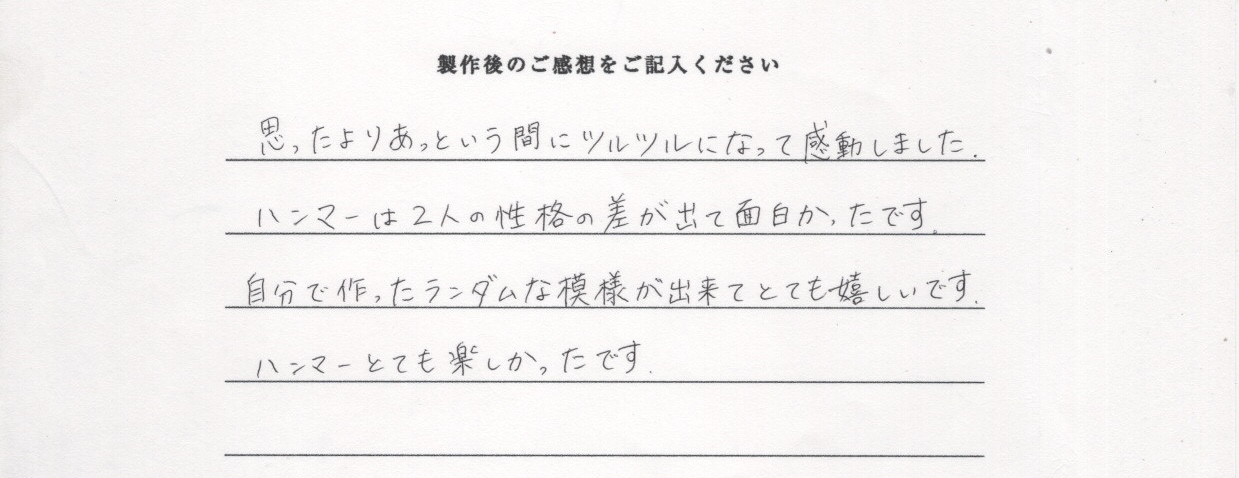 製作後のご感想をご記入ください
思ったよりあっという間にツルツルになって感動しました.
ハンマーは2人の性格の差が出て面白かったです.
自分で作ったランダムな模様が出来てとても嬉しいです.
ハンマーとても楽しかったです.